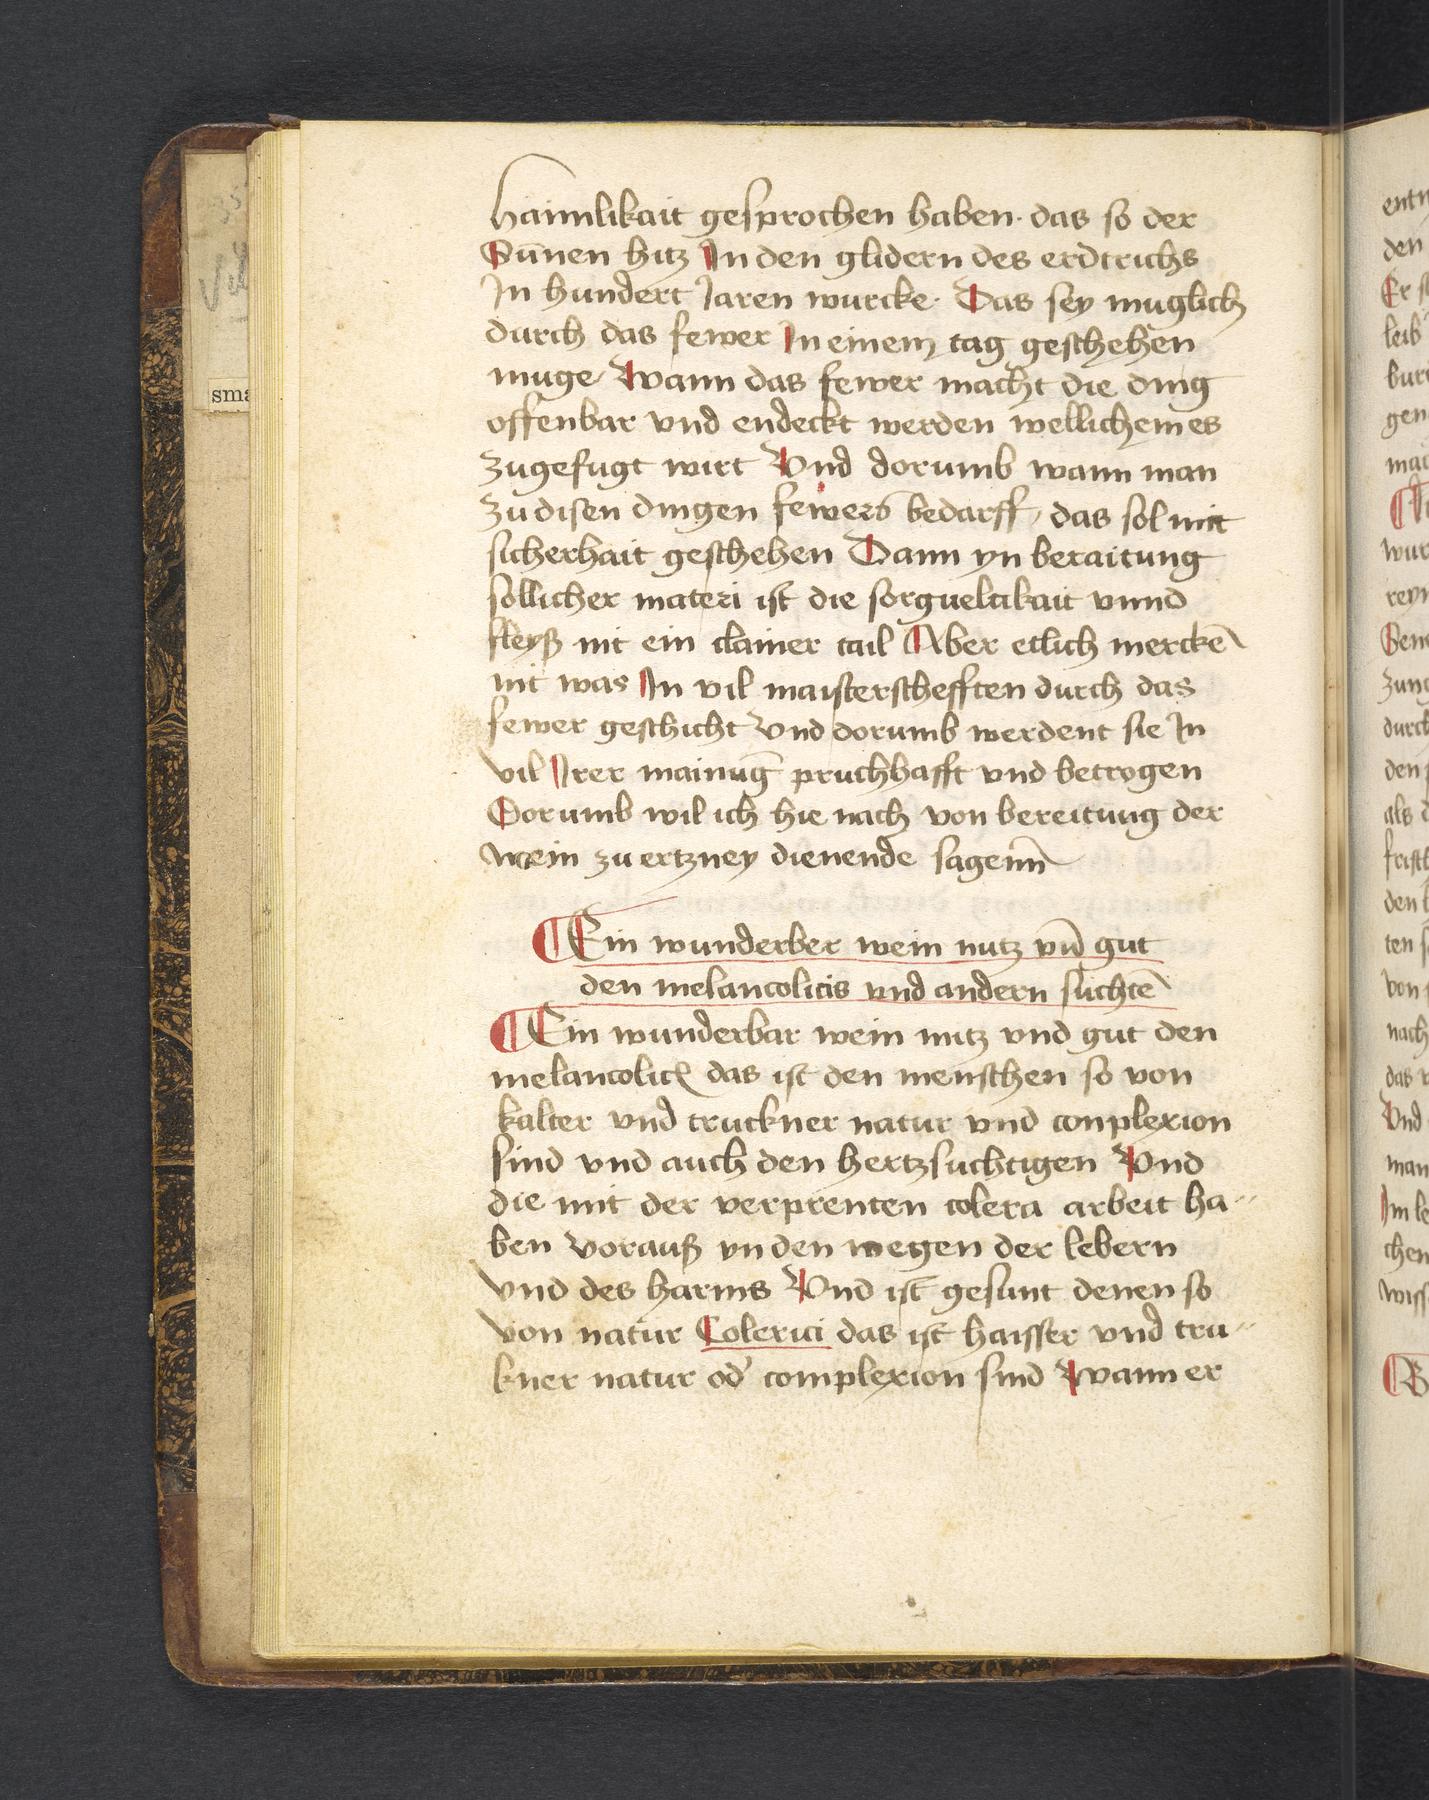 hainnlikait gesprochen haben· das so der
Sūnen hitz In den glidern des erdtrichs
In hundert Jaren wurcke· Das sey muglich
durch das fewer In einem tag geschehen
muge Wann das fewer macht die ding
offenbar vnd endeckt werden wellichem es
zugefugt wirt Vnd dorumb wann man
zu disen dingen fewers bedarff / das sol mit
sicherhait geschehen Dann yn beraitung
sollicher materi ist die sorgueltikait vnnd
fleyß nit ein clainer tail Aber etlich merckē
nit was In vil maisterschefften durch das
fewer geschicht Vnd dorumb werdent sie In
vil Irer mainūg pruchhafft vnd betrogen
Dorumb wil ich hie nach von bereitung der
wein zu ertzney dienende sagenn̄
¶ Ein wunderber wein nutz vn̄ gut
den melancolicis vnd andern suchtē
¶ Ein wunderbar wein nutz vnd gut den
melancolicꝭ das ist den menschen so von
kalter vnd truckner natur vnd conplexion
sind vnd auch den hertzsuchtigen Vnd
die mit der verprenten colera arbeit ha-
ben vorauß yn den wegen der lebern
vnd des harms Vnd ist gesunt denen so
von natur Colerici das ist haisser vnd tru-
kner natur od' complexion sind Wann er
sma
entw
den
Er s
leib
gen
wur
reyn
zung
durch
den
als d
den
ten s
von
nach
das
Vnd
man
chen
wiss